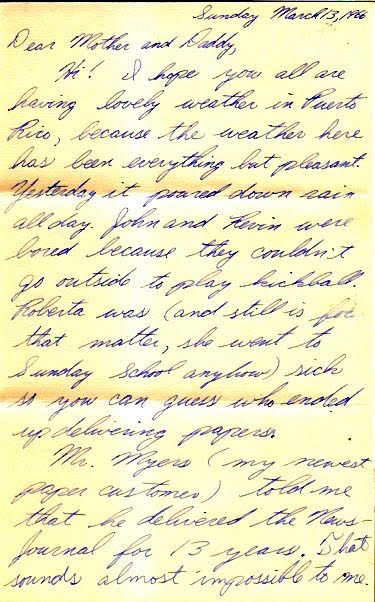 Sunday March 13, 1966
Dear Mother and Daddy,
Hi! I hope you all are
having lovely weather in Puerto
Rico, because the weather here
has been everything but pleasant.
Yesterday it poured down rain
all day. John and Kevin were
bored because they couldn't
go outside to play kickball.
Roberta was (and still is for
that matter, she went to
Sunday School anyhow) sick
so you can guess who ended
up delivering papers.
Mr. Myers (my newest
paper customer) told me
that he delivered the News-
Journal for 13 years. That
sounds almost impossible to me.